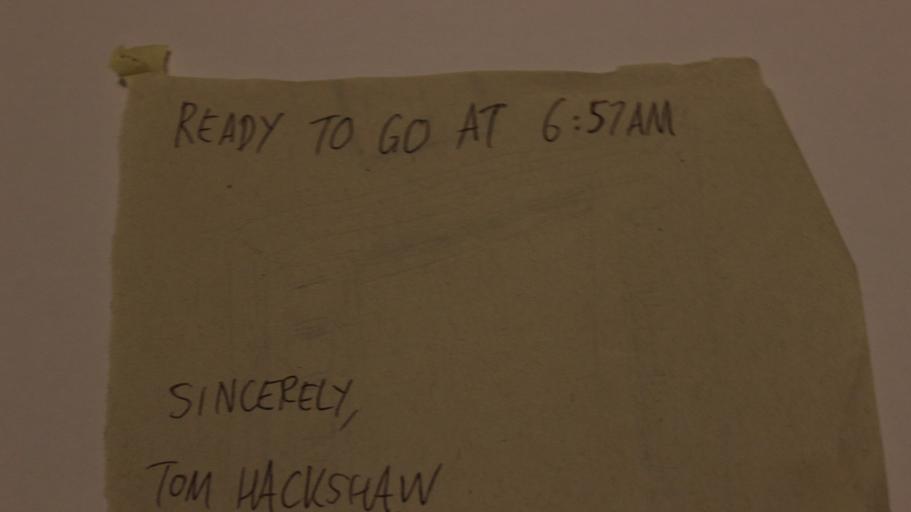 READY TO GO AT 6:57AM
SINCERELY,
TOM HACKSHAW